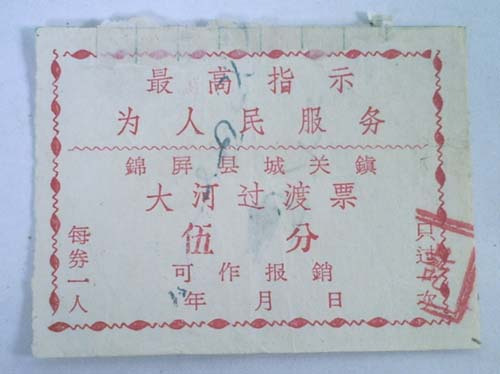 最高指示
为人民服务
錦屏县城关鎮
大河过渡票
伍分
每券一人
可作报銷
年月日